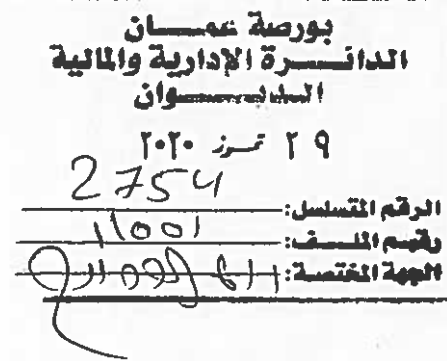 بورصة عمـــان
الدائـــرة الإدارية والمالية
الديـــوان
٢٩ تمـوز ٢٠٢٠
الرقم المتسلسل: 2754
رقم الملـــف: 11001
الجهة المختصة: